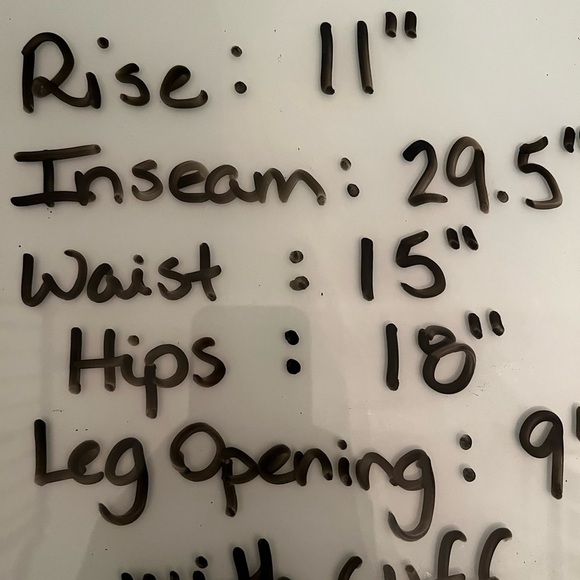 Rise : 11"
Inseam : 29.5"
Waist : 15"
Hips : 18"
Leg Opening : 9"
with cuff